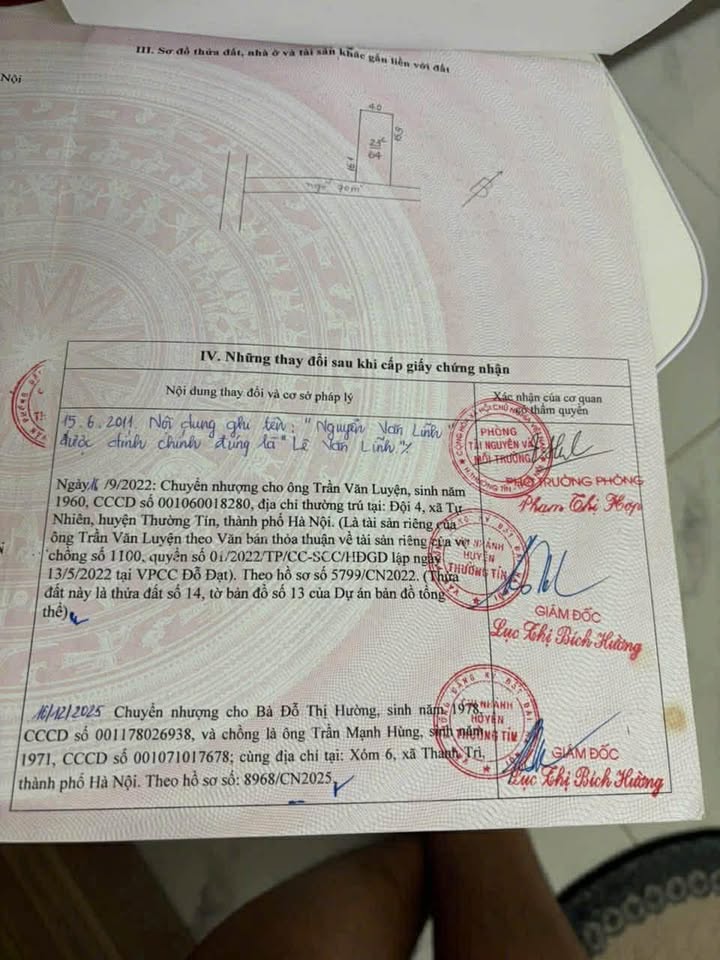 III. Sơ đồ thửa đất, nhà ở và tài sản khác gắn liền với đất
Nội
4.0
15.9
16.1
64
ngõ
IV. Những thay đổi sau khi cấp giấy chứng nhận
Nội dung thay đổi và cơ sở pháp lý
Xác nhận của cơ quan
có thẩm quyền
15.6.2011. Nội dung ghi tên: "Nguyễn Văn Lĩnh"
được đính chính đúng là "Lê Văn Lĩnh"./.
PHÒNG
TÀI NGUYÊN VÀ
MÔI TRƯỜNG
PHÓ TRƯ�ởNG PHÒNG
Phạm Thị Hợp
Ngày 16/9/2022: Chuyển nhượng cho ông Trần Văn Luyện, sinh năm
1960, CCCD số 001060018280, địa chỉ thường trú tại: Đội 4, xã Tự
Nhiên, huyện Thường Tín, thành phố Hà Nội. (Là tài sản riêng của
ông Trần Văn Luyện theo Văn bản thỏa thuận về tài sản riêng của vợ
chồng số 1100, quyển số 01/2022/TP/CC-SCC/HĐGD lập ngày
13/5/2022 tại VPCC Đỗ Đạt). Theo hồ sơ số 5799/CN2022. (Thửa
đất này là thửa đất số 14, tờ bản đồ số 13 của Dự án bản đồ tổng
thể)
CHI NHÁNH
HUYỆN
THƯỜNG TÍN
GIÁM ĐỐC
Lục Thị Bích Hường
16/12/2025 Chuyển nhượng cho Bà Đỗ Thị Hường, sinh năm 1978,
CCCD số 001178026938, và chồng là ông Trần Mạnh Hùng, sinh năm
1971, CCCD số 001071017678; cùng địa chỉ tại: Xóm 6, xã Thanh Trì,
thành phố Hà Nội. Theo hồ sơ số: 8968/CN2025
CHI NHÁNH
HUYỆN
THƯỜNG TÍN
GIÁM ĐỐC
Lục Thị Bích Hường